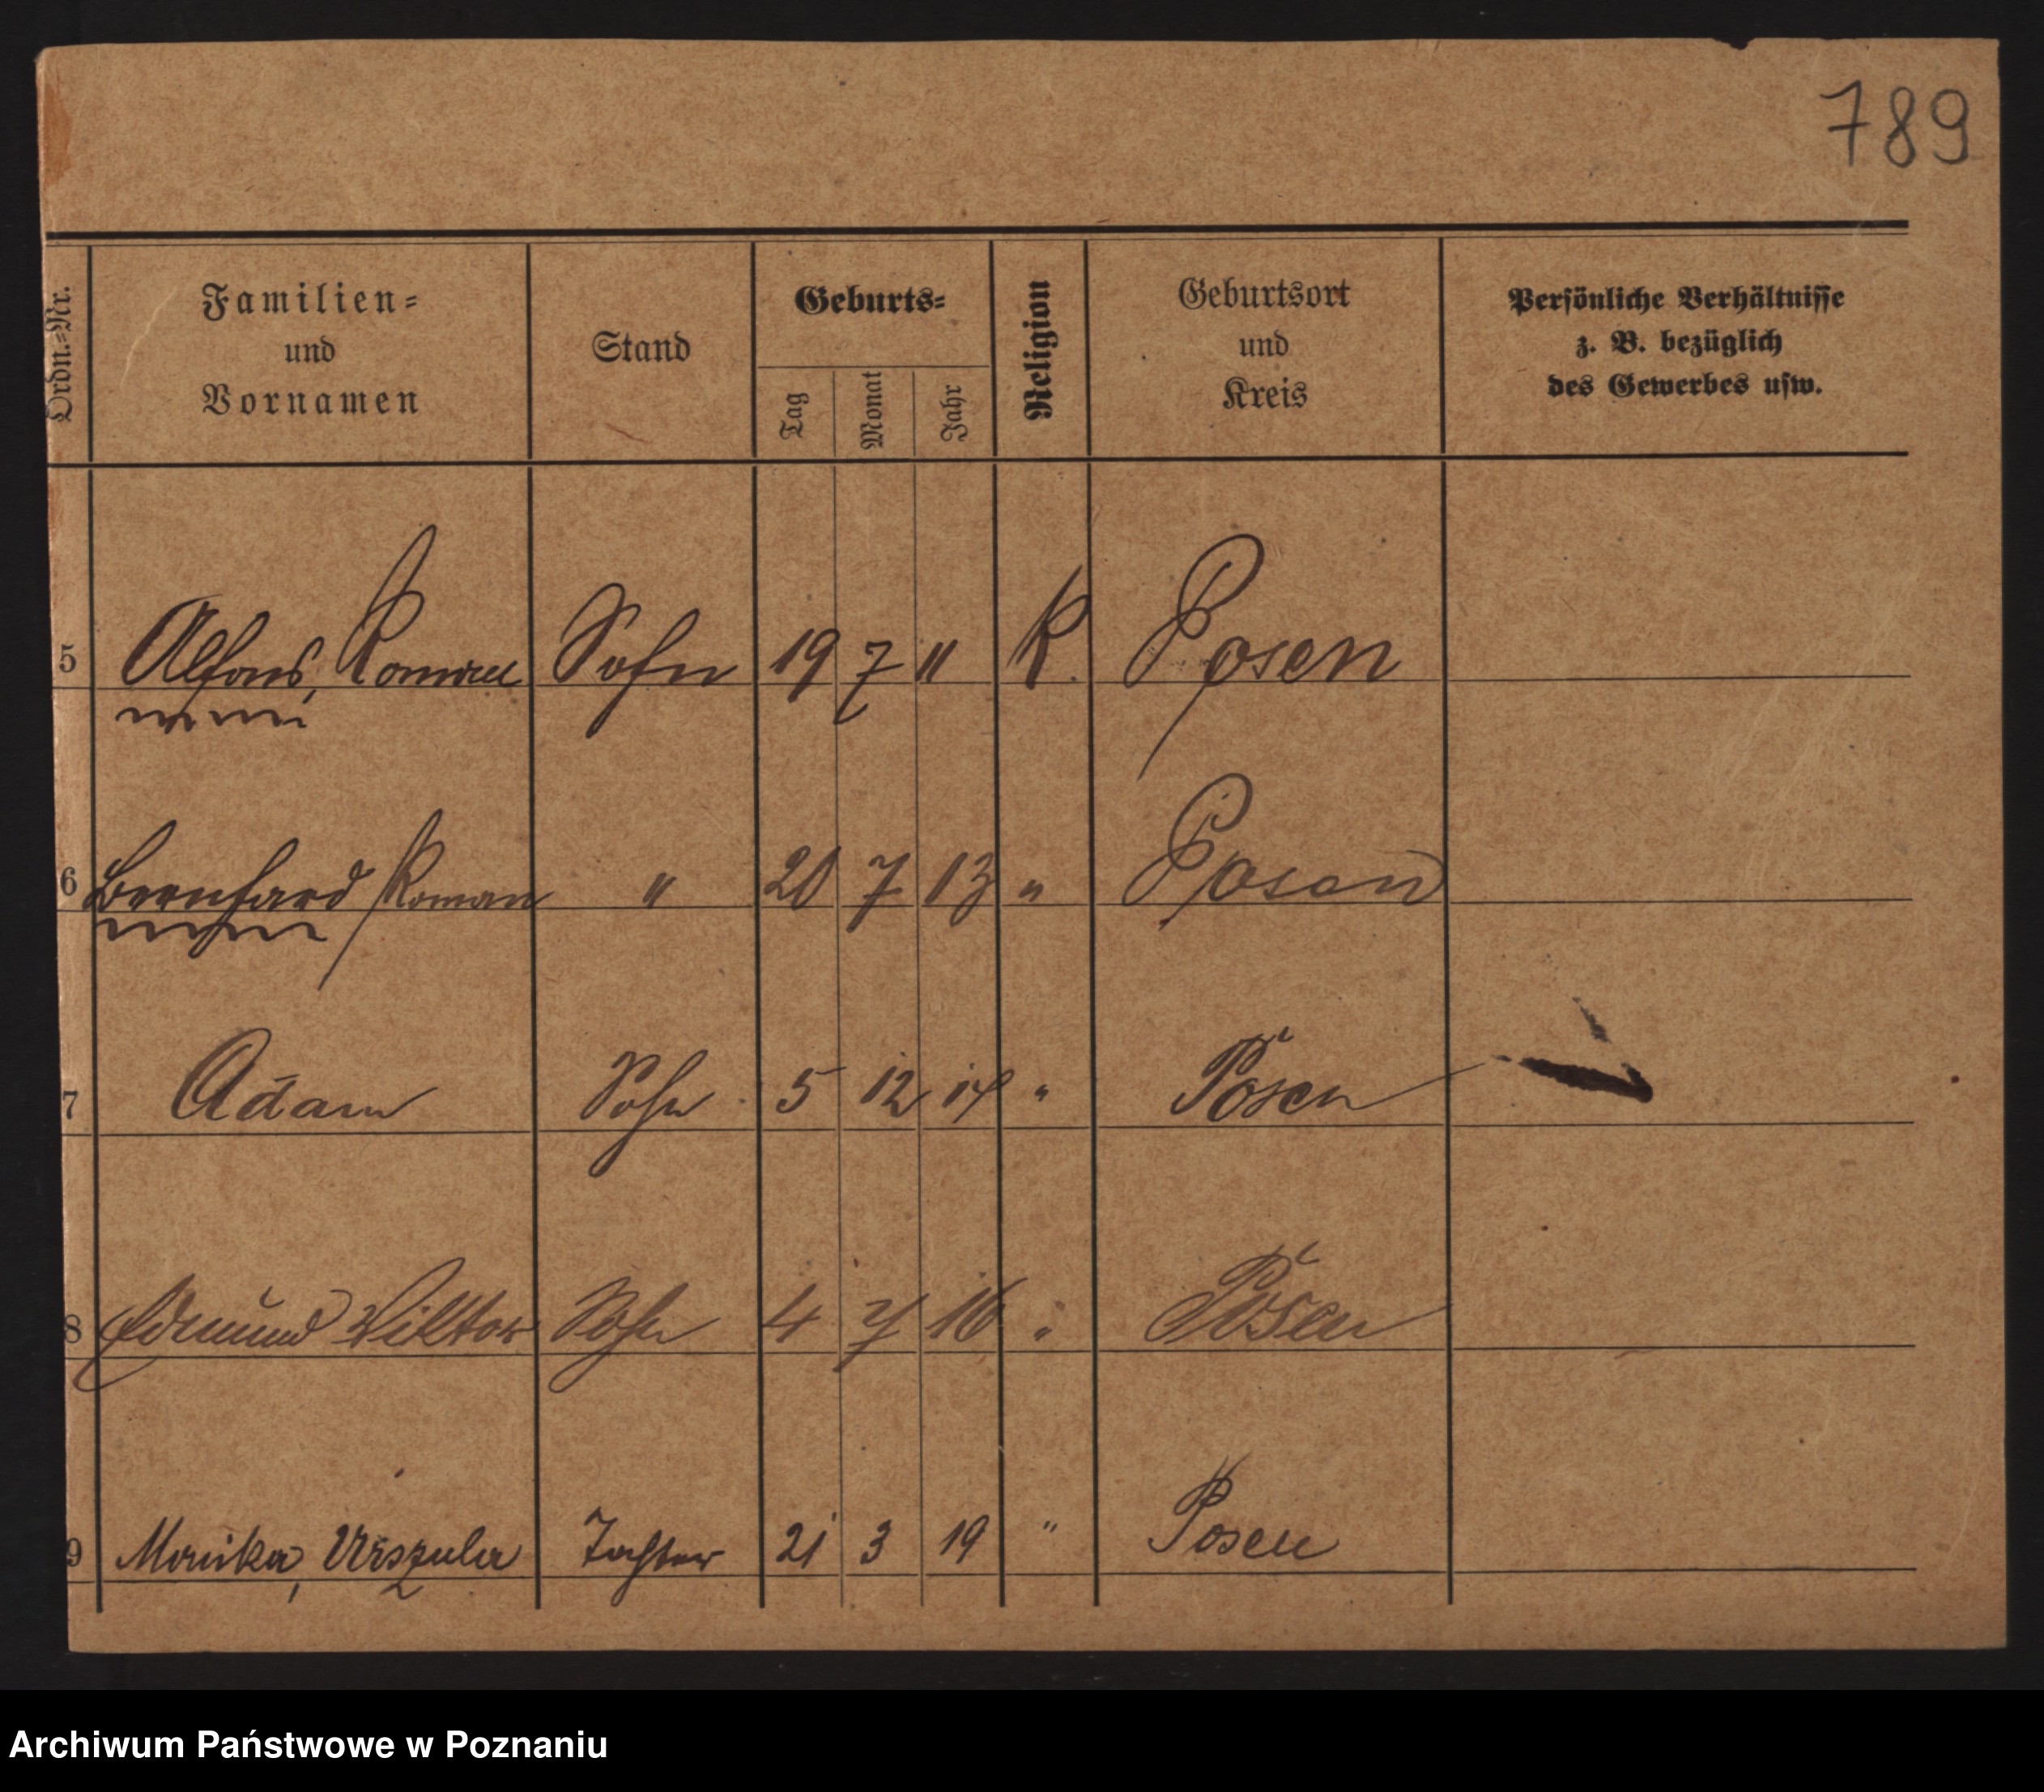 789
Ordn.-Nr. Familien- und Vornamen Stand Geburts- Tag Monat Jahr Religion Geburtsort und Kreis Persönliche Verhältnisse z. B. bezüglich des Gewerbes usw.
5 Alfons, Roman Sohn 19 7 11 K. Posen
6 Bernhard Roman " 20 7 13 " Posen
7 Adam Sohn 5 12 14 " Posen
8 Edmund Viktor Sohn 4 7 16 " Posen
9 Monika, Urszula Tochter 21 3 19 " Posen
Archiwum Państwowe w Poznaniu